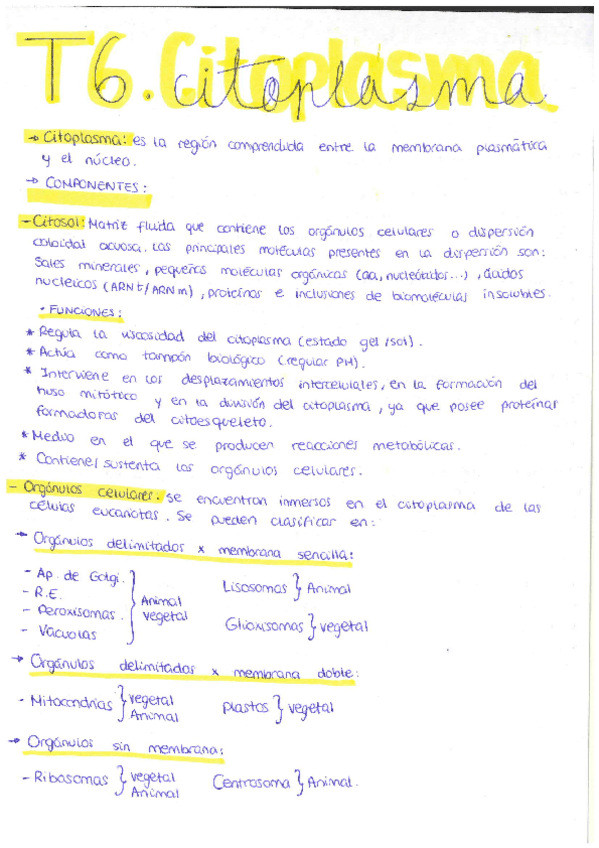 T6. Citoplasma
→ Citoplasma: es la región comprendida entre la membrana plasmática
y el núcleo.
→ COMPONENTES:
- Citosol: Matriz fluida que contiene los orgánulos celulares o dispersión
coloidal acuosa. Las principales moléculas presentes en la dispersión son:
Sales minerales, pequeñas moléculas orgánicas (aa, nucleótidos...), ácidos
nucleicos (ARNt/ARNm), proteínas e inclusiones de biomoléculas insolubles.
· FUNCIONES:
* Regula la viscosidad del citoplasma (estado gel/sol).
* Actúa como tampón biológico (regular PH).
* Interviene en los desplazamientos intercelulales, en la formación del
huso mitótico y en la división del citoplasma, ya que posee proteínas
formadoras del citoesqueleto.
* Medio en el que se producen reacciones metabólicas.
* Contiene/sustenta los orgánulos celulares.
- Orgánulos celulares: se encuentran inmersos en el citoplasma de las
células eucariotas. Se pueden clasificar en:
→ Orgánulos delimitados x membrana sencilla:
- Ap. de Golgi.
- R.E.
- Peroxisomas.
- Vacuolas
} Animal
vegetal
Lisosomas } Animal
Glioxisomas } vegetal
→ Orgánulos delimitados x membrana doble:
- Mitocondrias } vegetal
Animal
plastos } vegetal
→ Orgánulos sin membrana:
- Ribosomas } vegetal
Animal
Centrosoma } Animal.